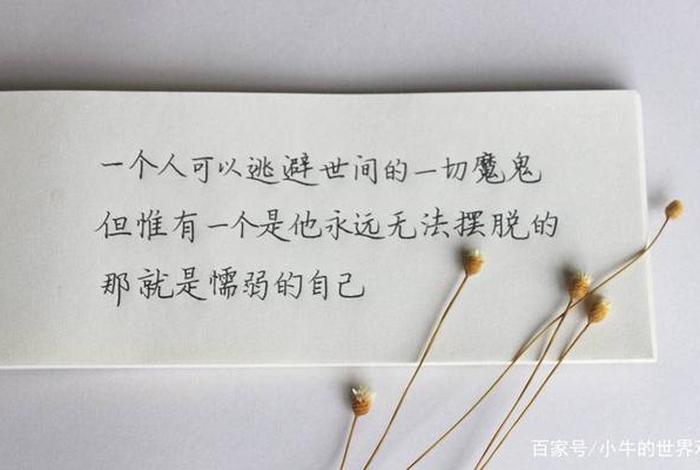 一个人可以逃避世间的一切魔鬼
但惟有一个是他永远无法摆脱的
那就是懦弱的自己
百家号/小牛的世界